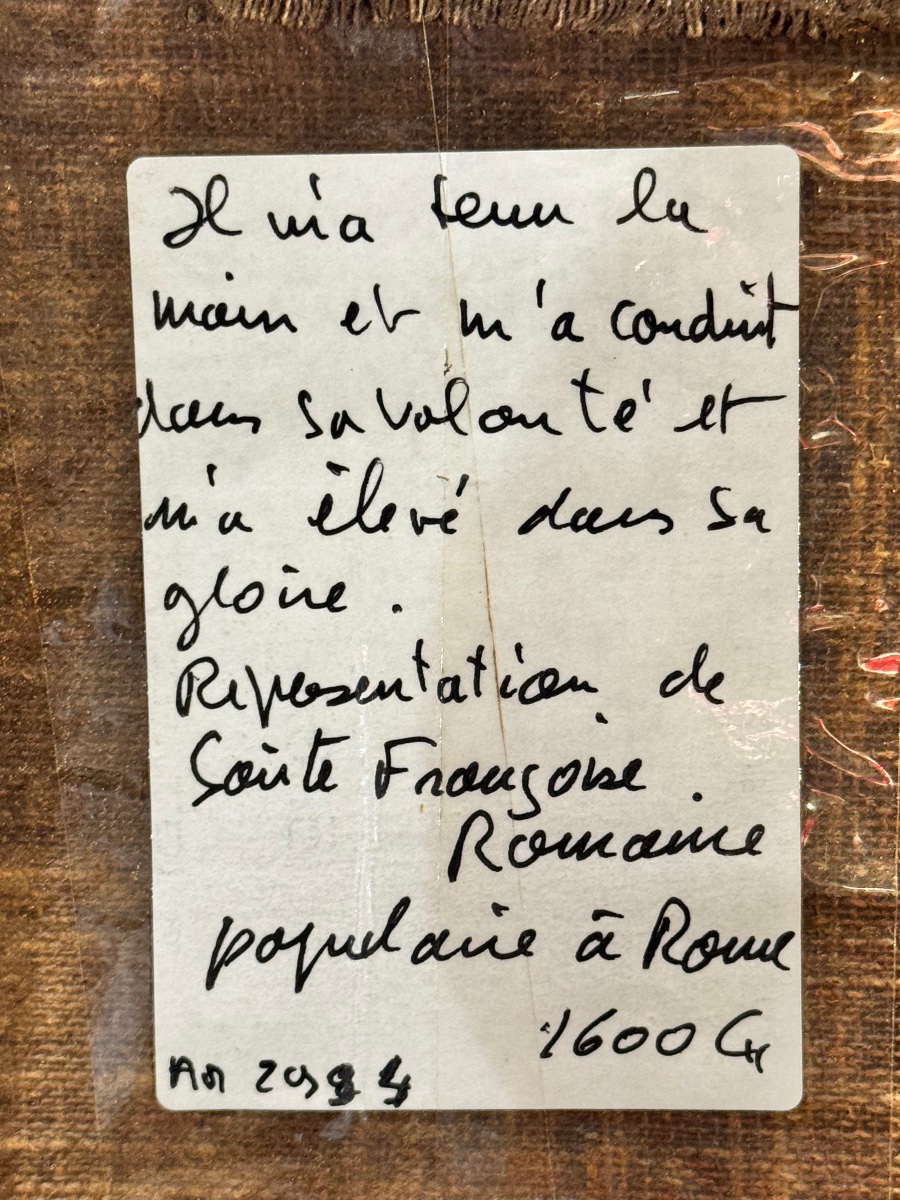 Il m'a tenu la
main et m'a conduit
dans sa volonté et
m'a élevé dans sa
gloire.
Représentation de
Sainte Françoise
Romaine
populaire à Rome
1600